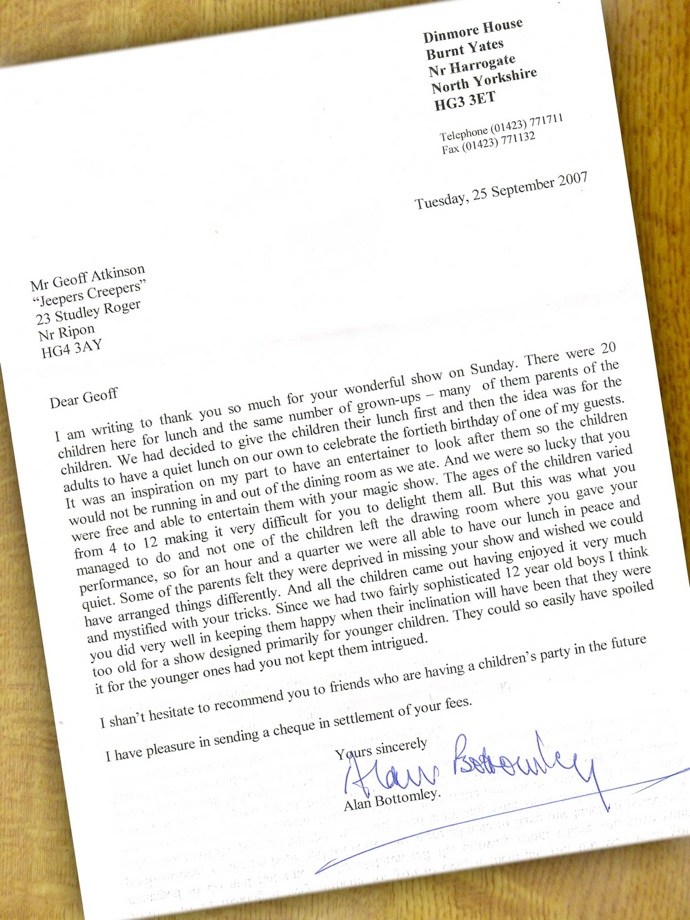 Dinmore House
Burnt Yates
Nr Harrogate
North Yorkshire
HG3 3ET
Telephone (01423) 771711
Fax (01423) 771132
Tuesday, 25 September 2007
Mr Geoff Atkinson
“Jeepers Creepers”
23 Studley Roger
Nr Ripon
HG4 3AY
Dear Geoff
I am writing to thank you so much for your wonderful show on Sunday. There were 20
children here for lunch and the same number of grown-ups – many of them parents of the
children. We had decided to give the children their lunch first and then the idea was for the
adults to have a quiet lunch on our own to celebrate the fortieth birthday of one of my guests.
It was an inspiration on my part to have an entertainer to look after them so the children
would not be running in and out of the dining room as we ate. And we were so lucky that you
were free and able to entertain them with your magic show. The ages of the children varied
from 4 to 12 making it very difficult for you to delight them all. But this was what you
managed to do and not one of the children left the drawing room where you gave your
performance, so for an hour and a quarter we were all able to have our lunch in peace and
quiet. Some of the parents felt they were deprived in missing your show and wished we could
have arranged things differently. And all the children came out having enjoyed it very much
and mystified with your tricks. Since we had two fairly sophisticated 12 year old boys I think
you did very well in keeping them happy when their inclination will have been that they were
too old for a show designed primarily for younger children. They could so easily have spoiled
it for the younger ones had you not kept them intrigued.
I shan’t hesitate to recommend you to friends who are having a children’s party in the future
I have pleasure in sending a cheque in settlement of your fees.
Yours sincerely
Alan Bottomley
Alan Bottomley.